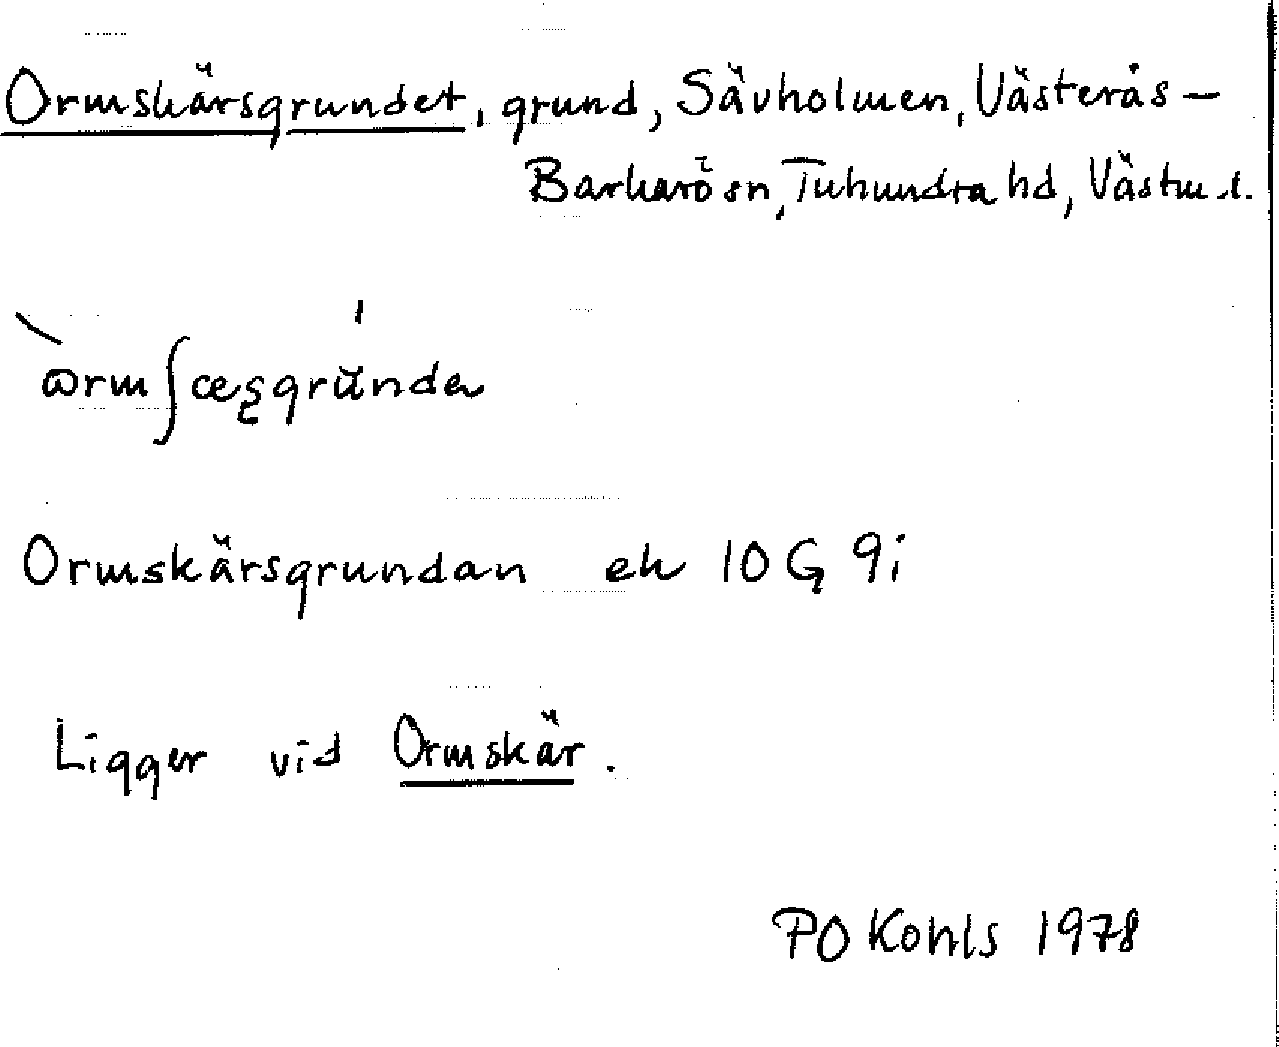 Ormskärsgrundet, grund, Sävholmen, Västerås –
Barkarö sn, Tuhundra hd, Västm l.
Ormskärsgrundan ek 10G 9i
Ligger vid Ormskär.
PO Kohls 1978